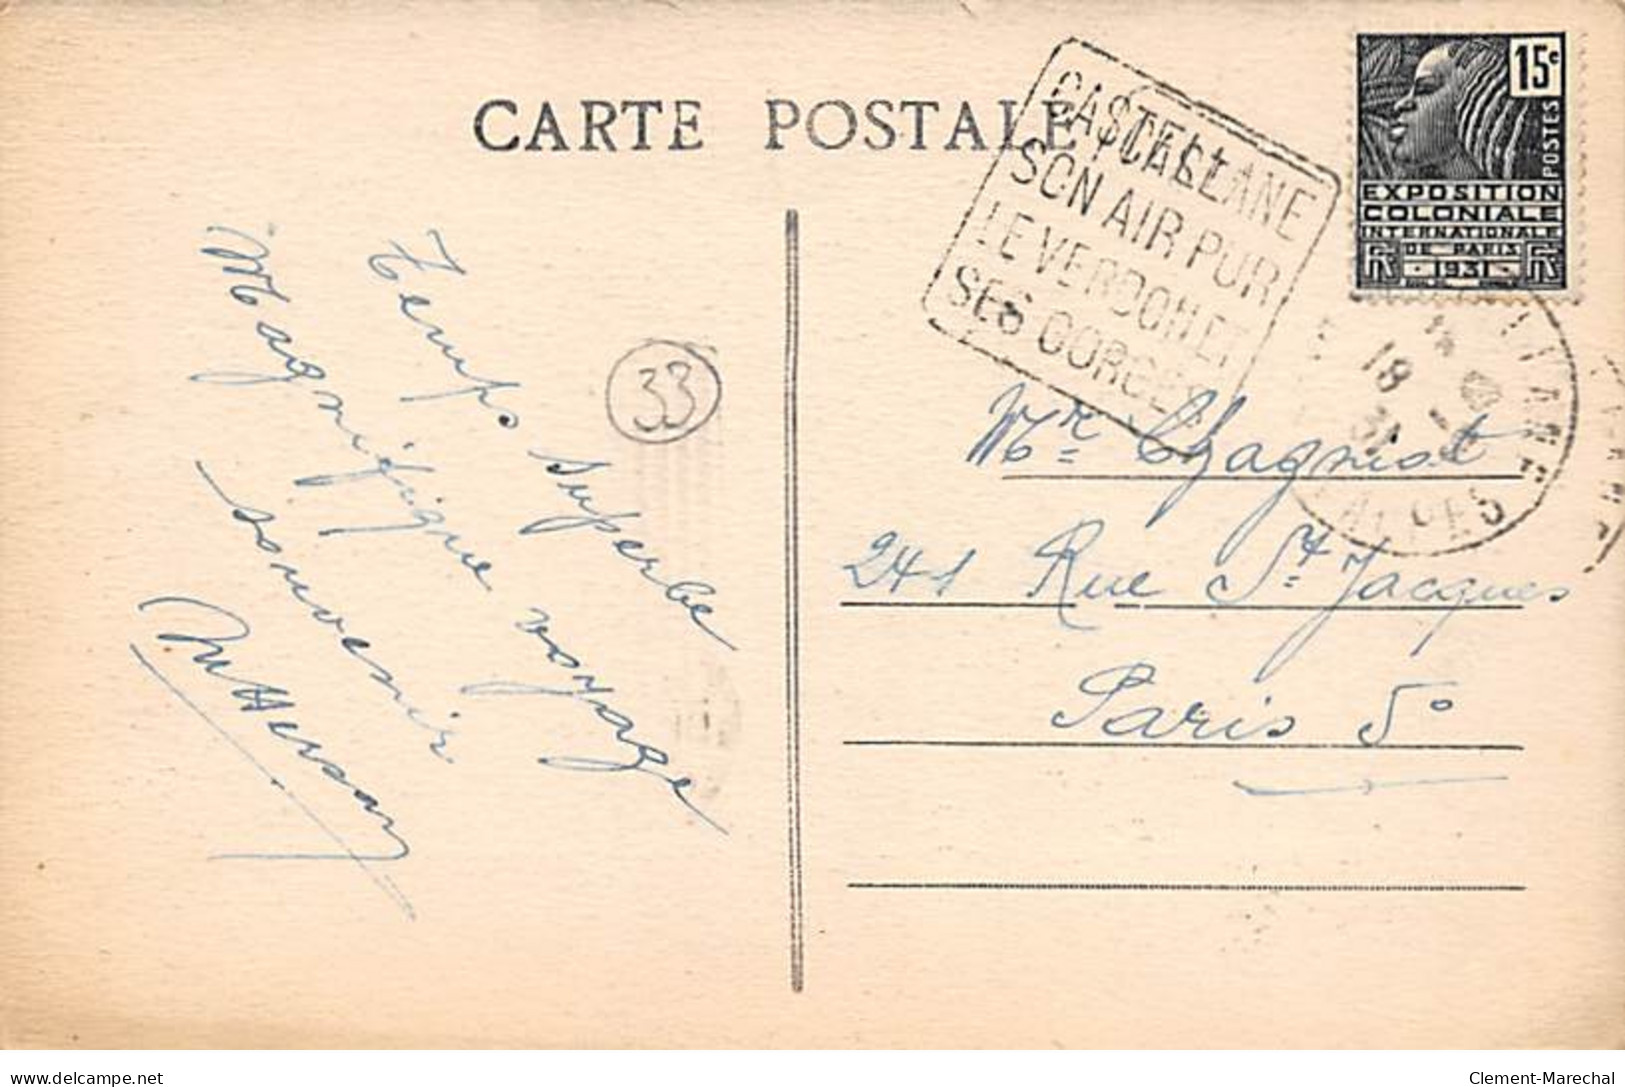 CARTE POSTALE
CASTELLANE
SON AIR PUR
LE VERDON ET
SES GORGES
15c
POSTES
EXPOSITION
COLONIALE
INTERNATIONALE
DE PARIS
1931
18
31
ALPES
Temps superbe
Magnifique voyage
souvenir
33
Mr. Chagniot
241 Rue St. Jacques
Paris 5°
delcampe.net
Clement-Marechal